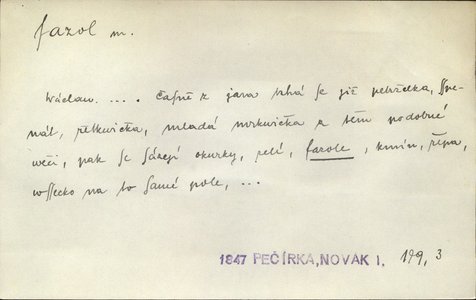 fazol m.
Wáclaw. . . . Časně z jara trhá se již petržella, sspe-
nát, řetkwička, mladá mrkwička a těm podobné
wěci, pak se sázejí okurky, zelí, fazole, kmín, řepa,
wssecko na to samé pole, ...
1847 PEČÍRKA, NOVÁK I. 199, 3